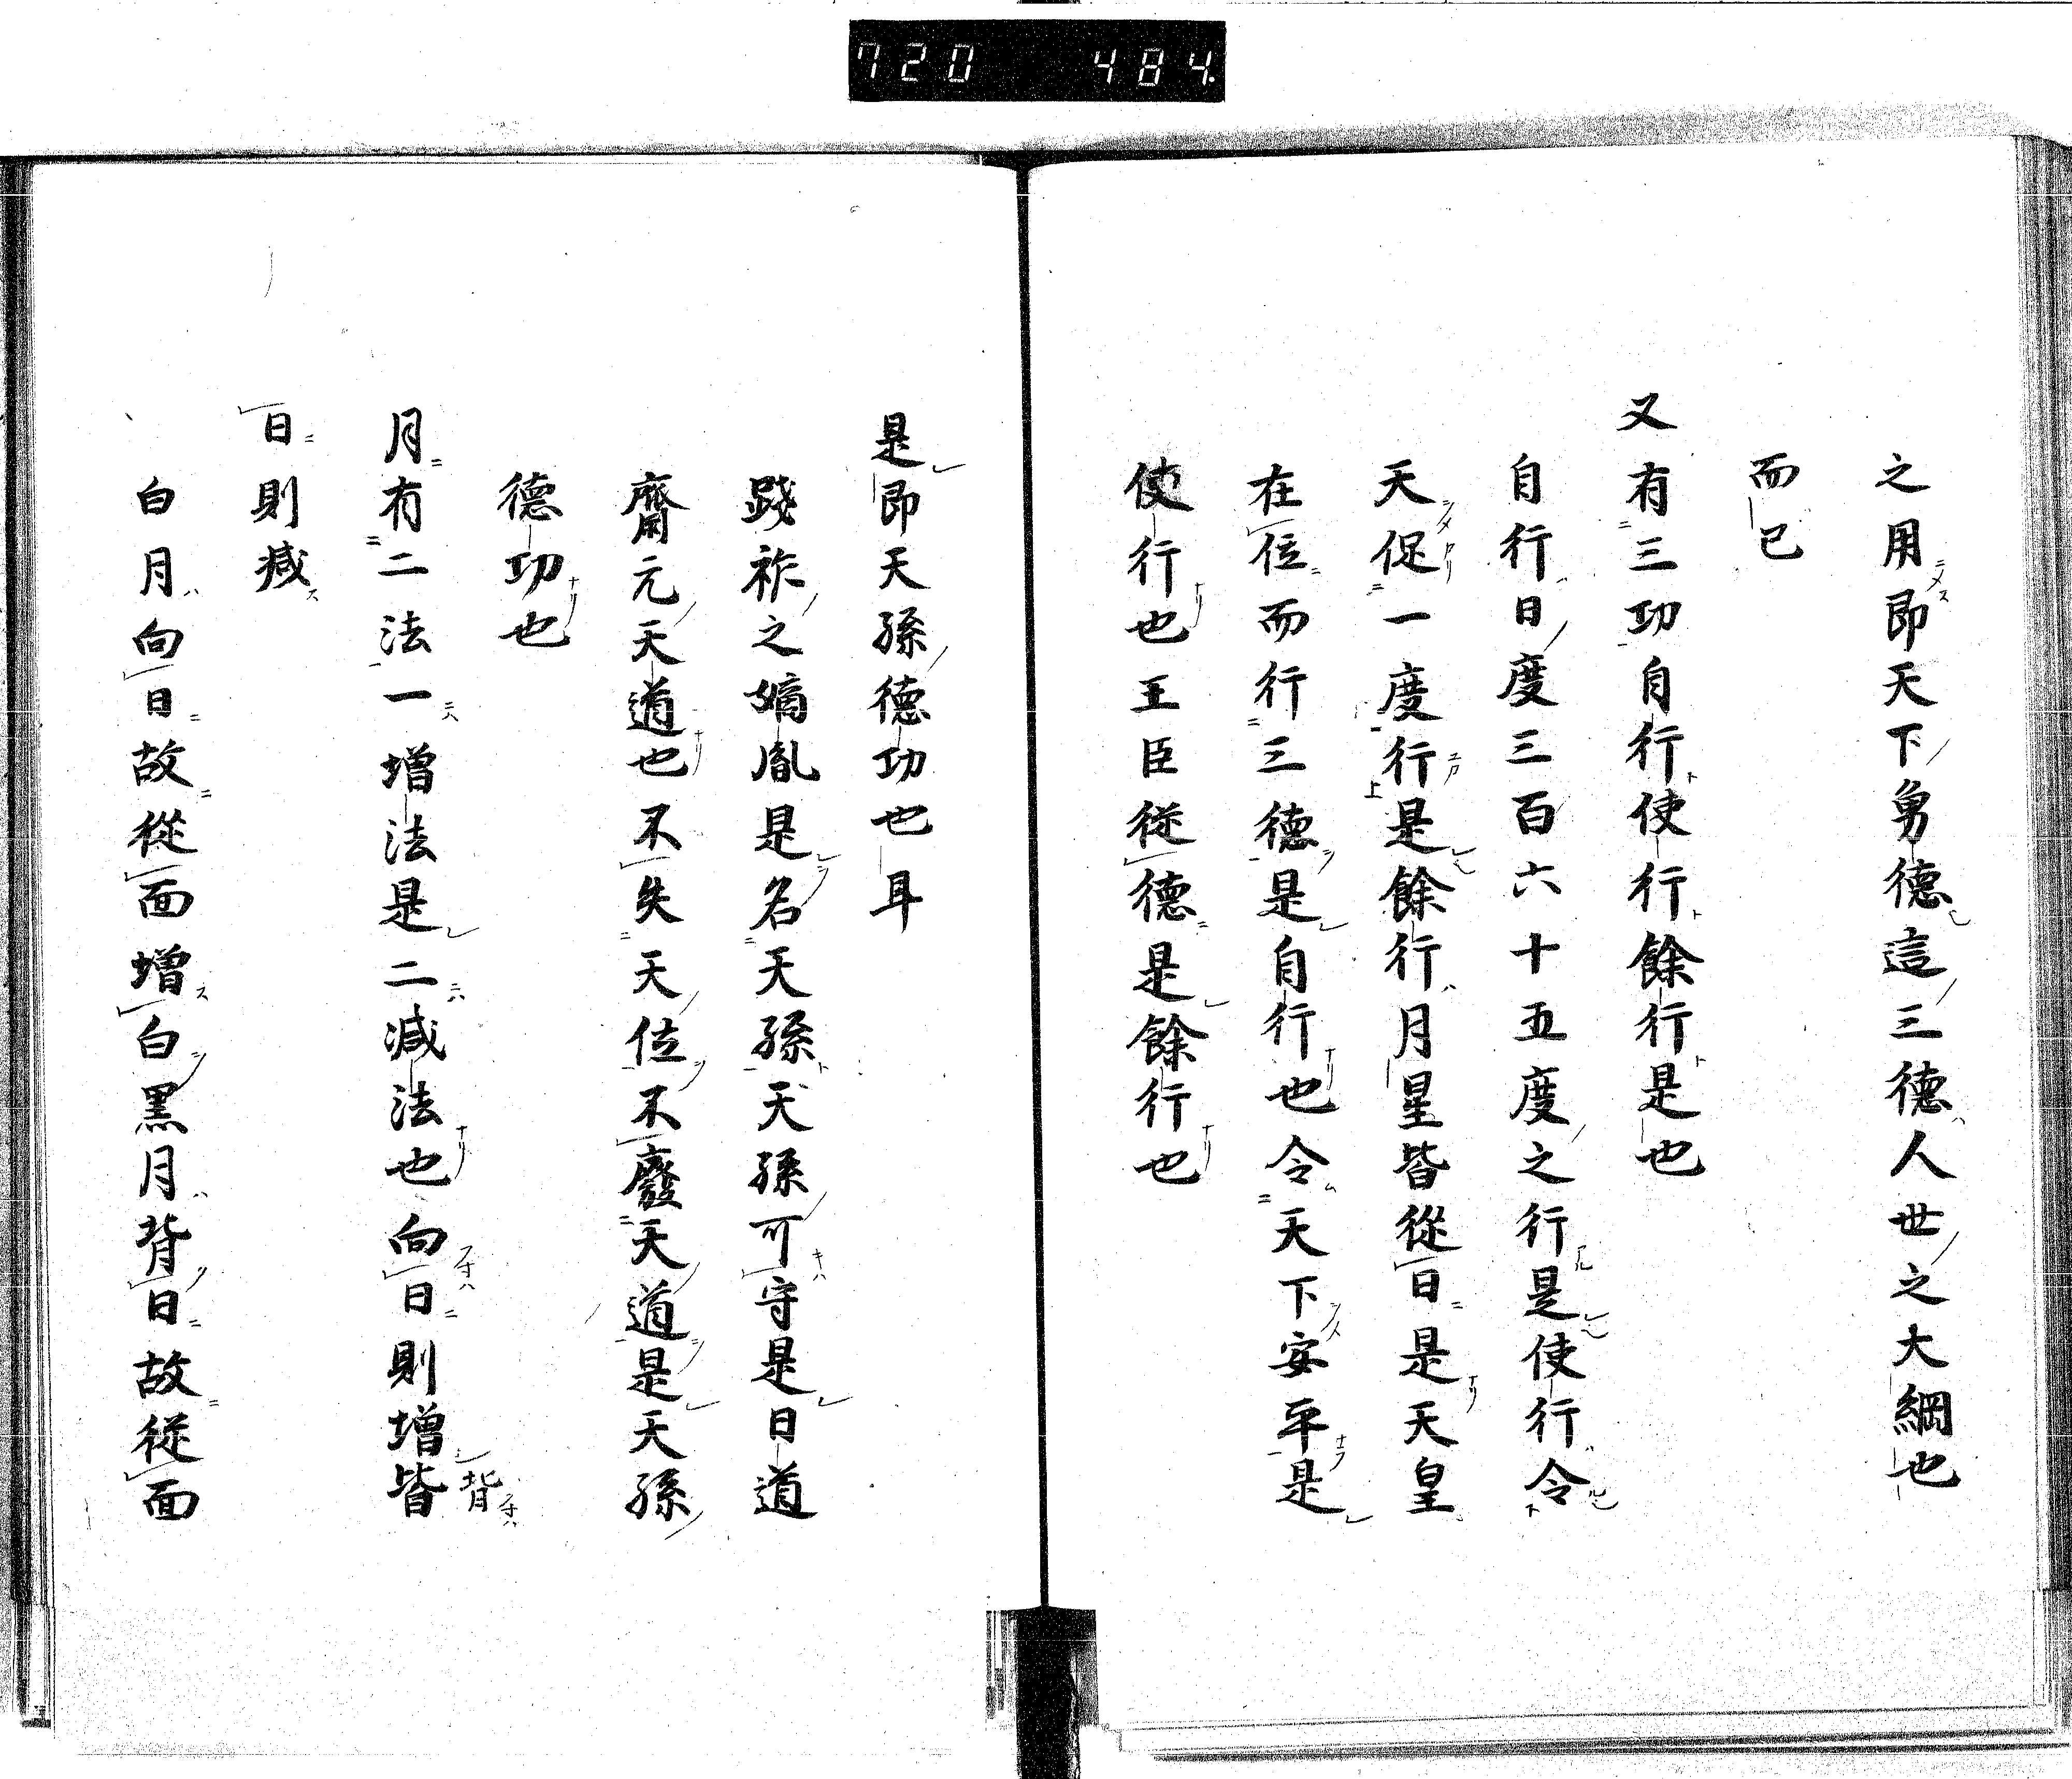 720 484
之用即天下勇德這三德人世之大綱也
而已
又有三功自行使行餘行是也
自行日度三百六十五度之行是使行令
天促一度行是餘行月星皆從日是天皇
在位而行三德是自行也令天下安平是
使行也王臣従德是餘行也
是即天孫德功也耳
踐祚之嫡胤是名天孫天孫可守是日道
齋元天道也不失天位不廢天道是天孫
德功也
月有二法一増法是二減法也向日則増皆
背
日則減
白月向日故從面増白黒月背日故從面